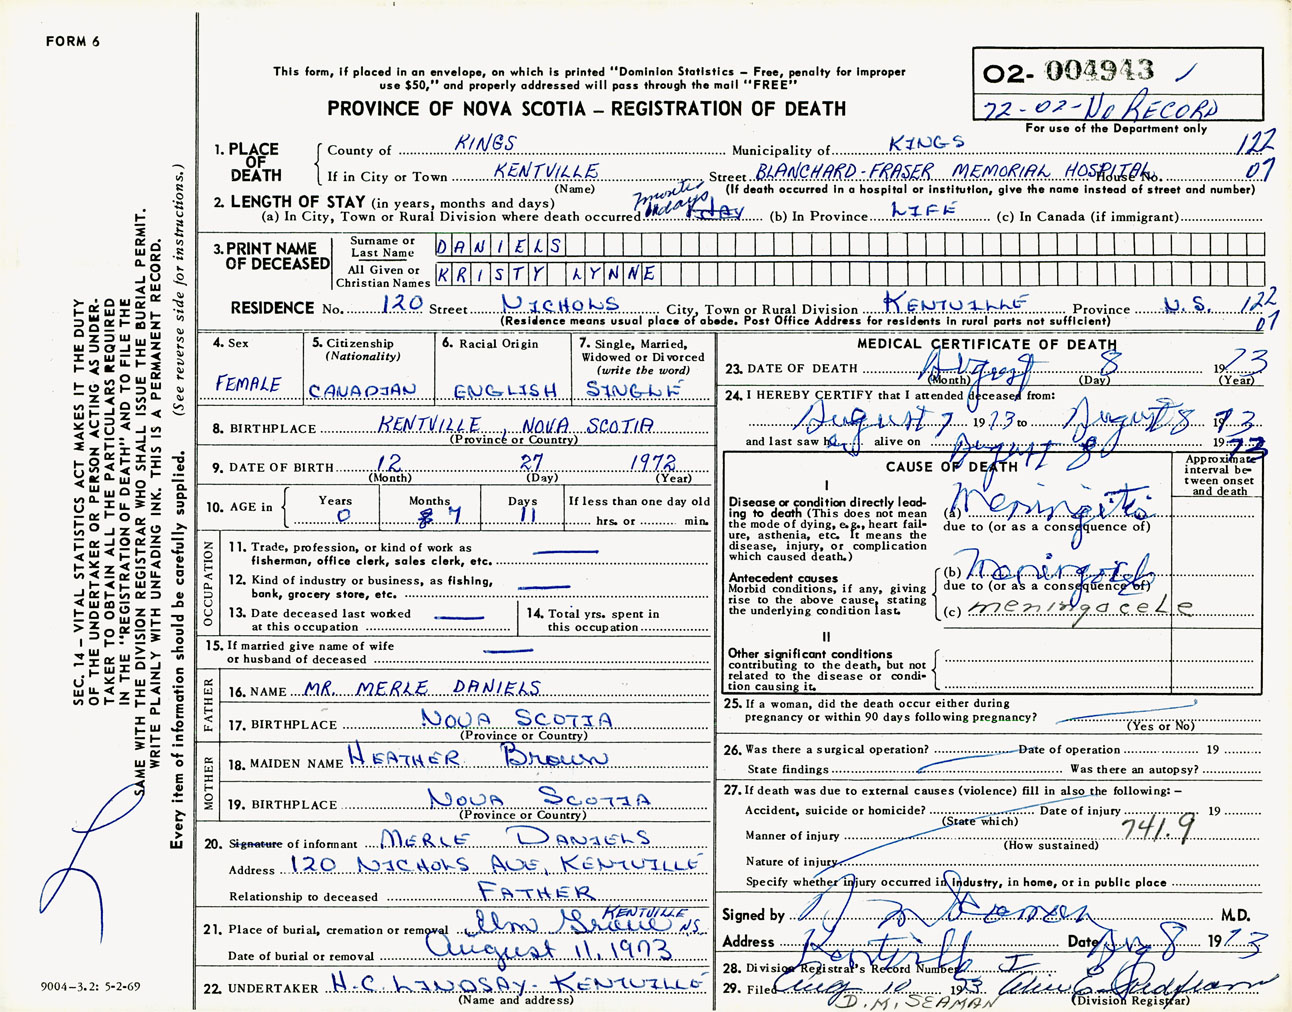 FORM 6
This form, if placed in an envelope, on which is printed "Dominion Statistics – Free, penalty for improper
use $50," and properly addressed will pass through the mail "FREE"
PROVINCE OF NOVA SCOTIA – REGISTRATION OF DEATH
02- 004943
72-02-No RECORD
For use of the Department only
SEC. 14 – VITAL STATISTICS ACT MAKES IT THE DUTY
OF THE UNDERTAKER OR PERSON ACTING AS UNDER-
TAKER TO OBTAIN ALL THE PARTICULARS REQUIRED
IN THE "REGISTRATION OF DEATH" AND TO FILE THE
SAME WITH THE DIVISION REGISTRAR WHO SHALL ISSUE THE BURIAL PERMIT.
WRITE PLAINLY WITH UNFADING INK. THIS IS A PERMANENT RECORD.
Every item of information should be carefully supplied. (See reverse side for instructions.)
1. PLACE OF DEATH
County of KINGS Municipality of KINGS 122
If in City or Town KENTVILLE Street BLANCHARD-FRASER MEMORIAL HOSPITAL House No. 07
(Name) (If death occurred in a hospital or institution, give the name instead of street and number)
2. LENGTH OF STAY (in years, months and days)
(a) In City, Town or Rural Division where death occurred 7 months 11 days 1 DAY (b) In Province LIFE (c) In Canada (if immigrant)
3. PRINT NAME OF DECEASED
Surname or Last Name DANIELS
All Given or Christian Names KRISTY LYNNE
RESIDENCE No. 120 Street NICHOLS City, Town or Rural Division KENTVILLE Province N.S. 122
(Residence means usual place of abode. Post Office Address for residents in rural parts not sufficient) 07
4. Sex FEMALE
5. Citizenship (Nationality) CANADIAN
6. Racial Origin ENGLISH
7. Single, Married, Widowed or Divorced (write the word) SINGLE
8. BIRTHPLACE KENTVILLE, NOVA SCOTIA
(Province or Country)
9. DATE OF BIRTH 12 27 1972
(Month) (Day) (Year)
10. AGE in Years 0 Months 8 7 Days 11 If less than one day old hrs. or min.
OCCUPATION
11. Trade, profession, or kind of work as
fisherman, office clerk, sales clerk, etc.
12. Kind of industry or business, as fishing,
bank, grocery store, etc.
13. Date deceased last worked
at this occupation
14. Total yrs. spent in
this occupation
15. If married give name of wife
or husband of deceased
FATHER
16. NAME MR. MERLE DANIELS
17. BIRTHPLACE NOVA SCOTIA
(Province or Country)
MOTHER
18. MAIDEN NAME HEATHER BROWN
19. BIRTHPLACE NOVA SCOTIA
(Province or Country)
20. Signature of informant MERLE DANIELS
Address 120 NICHOLS AVE, KENTVILLE
Relationship to deceased FATHER
21. Place of burial, cremation or removal Elm Grove KENTVILLE N.S.
Date of burial or removal August 11, 1973
22. UNDERTAKER H.C. LINDSAY - KENTVILLE
(Name and address)
9004–3.2: 5-2-69
MEDICAL CERTIFICATE OF DEATH
23. DATE OF DEATH August 8 1973
(Month) (Day) (Year)
24. I HEREBY CERTIFY that I attended deceased from:
August 7 1973 to August 8 1973
and last saw her alive on August 8 1973
CAUSE OF DEATH
Approximate interval between onset and death
I
Disease or condition directly leading to death (This does not mean the mode of dying, e.g., heart failure, asthenia, etc. It means the disease, injury, or complication which caused death.)
(a) Meningitis
due to (or as a consequence of)
Antecedent causes
Morbid conditions, if any, giving rise to the above cause, stating the underlying condition last.
(b)
due to (or as a consequence of)
(c) meningocele
II
Other significant conditions
contributing to the death, but not related to the disease or condition causing it.
25. If a woman, did the death occur either during
pregnancy or within 90 days following pregnancy?
(Yes or No)
26. Was there a surgical operation? Date of operation 19
State findings Was there an autopsy?
27. If death was due to external causes (violence) fill in also the following: –
Accident, suicide or homicide? Date of injury 19
(State which)
Manner of injury 741.9
(How sustained)
Nature of injury
Specify whether injury occurred in industry, in home, or in public place
Signed by D M Seaman M.D.
Address Kentville Date Aug 8 1973
28. Division Registrar's Record Number
29. Filed Aug 10 1973
(Division Registrar)
D.M. SEAMAN